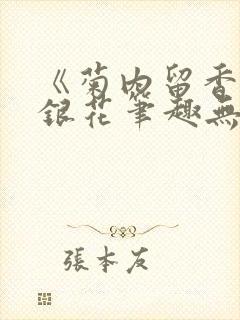 《菊内留香
銀花筆趣無
張本友